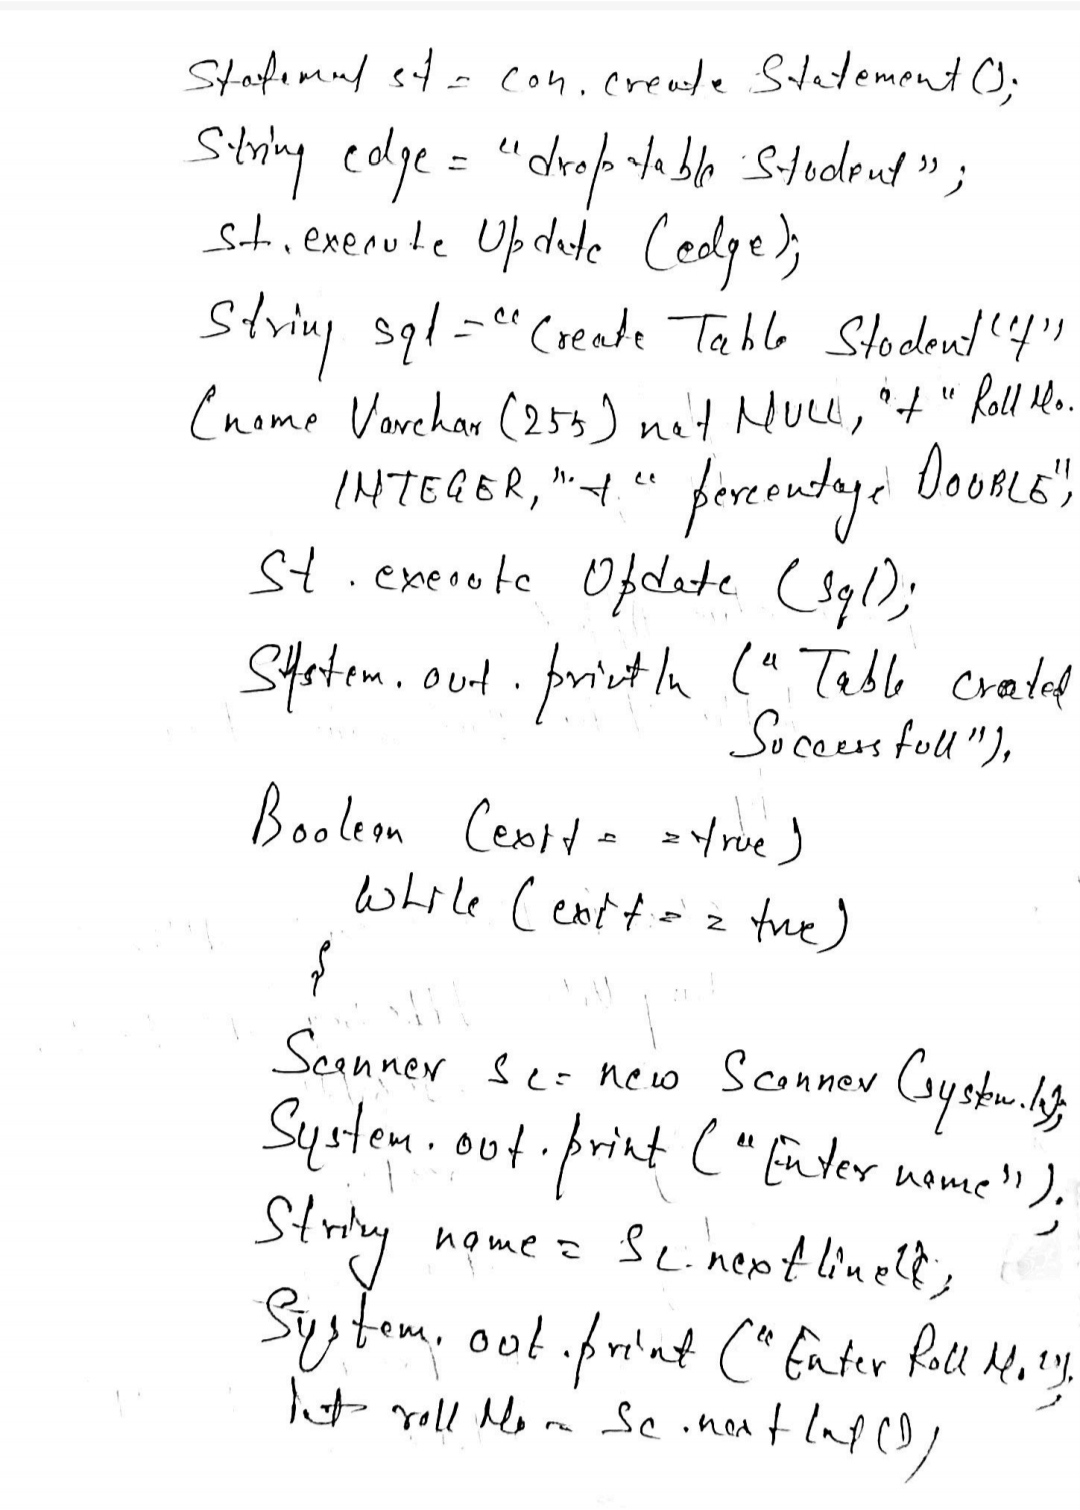 Statement st = con. create Statement ();
String edge = "drop table Student";
st. execute Update (edge);
String sql = "Create Table Student" + "
(name Varchar (255) not NULL, " + " Roll No.
INTEGER, " + " percentage DOUBLE";
St . execute Update (sql);
System. out . println (" Table created
Successfull");
Boolean (exit = = true)
while (exit = = true)
{
Scanner sc = new Scanner (system.in);
System. out. print ("Enter name");
String name = Sc. nextline();
System. out .print ("Enter Roll No.");
Int roll No = Sc .next Int ();